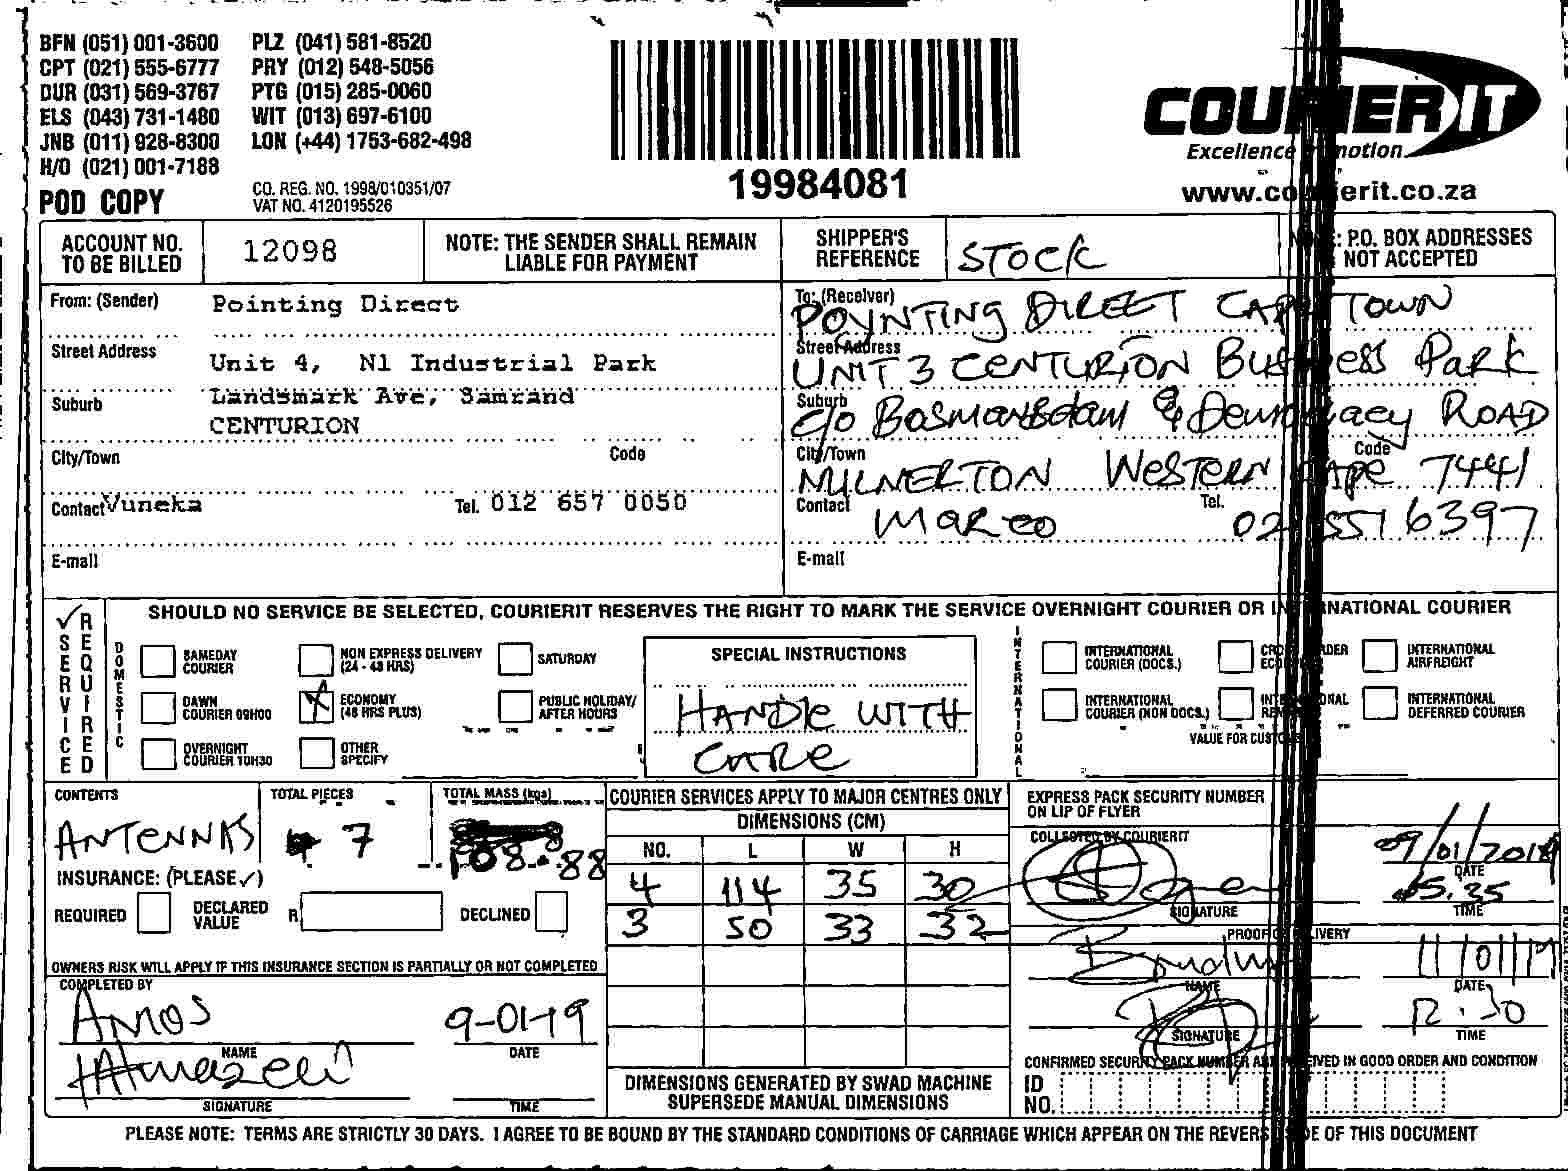 BFN (051) 001-3600 PLZ (041) 581-8520
CPT (021) 555-6777 PRY (012) 548-5056
DUR (031) 569-3767 PTG (015) 285-0060
ELS (043) 731-1480 WIT (013) 697-6100
JNB (011) 928-8300 LON (+44) 1753-682-498
H/O (021) 001-7188
POD COPY
CO. REG. NO. 1998/010351/07
VAT NO. 4120195526
19984081
COURIER IT
Excellence
www.courierit.co.za
ACCOUNT NO. TO BE BILLED
12098
NOTE: THE SENDER SHALL REMAIN LIABLE FOR PAYMENT
SHIPPER'S REFERENCE
STOCK
: P.O. BOX ADDRESSES NOT ACCEPTED
From: (Sender) Pointing Direct
Street Address Unit 4, N1 Industrial Park
Suburb Landsmark Ave, Samrand
CENTURION
City/Town Code
Contact Vuneka Tel. 012 657 0050
E-mail
To: (Receiver)
POYNTING DIRECT CAPE TOWN
Street Address
UNIT 3 CENTURION BUSINESS PARK
Suburb
C/O BOSMANSDAM & Democracy ROAD
City/Town Code
MILNERTON WESTERN CAPE 7441
Contact MARCO Tel. 021 551 6397
E-mail
SERVICE REQUIRED
SHOULD NO SERVICE BE SELECTED, COURIERIT RESERVES THE RIGHT TO MARK THE SERVICE OVERNIGHT COURIER OR INTERNATIONAL COURIER
DOMESTIC
SAMEDAY COURIER
NON EXPRESS DELIVERY (24 - 48 HRS)
SATURDAY
DAWN COURIER 09H00
X ECONOMY (48 HRS PLUS)
PUBLIC HOLIDAY/ AFTER HOURS
OVERNIGHT COURIER 10H30
OTHER SPECIFY
SPECIAL INSTRUCTIONS
HANDLE WITH
CARE
INTERNATIONAL
INTERNATIONAL COURIER (DOCS.)
INTERNATIONAL AIRFREIGHT
INTERNATIONAL COURIER (NON DOCS.)
INTERNATIONAL DEFERRED COURIER
VALUE FOR CUSTOMS
CONTENTS
ANTENNAS
TOTAL PIECES
7
TOTAL MASS (kgs)
108.88
INSURANCE: (PLEASE ✓)
REQUIRED
DECLARED VALUE R
DECLINED
OWNERS RISK WILL APPLY IF THIS INSURANCE SECTION IS PARTIALLY OR NOT COMPLETED
COMPLETED BY
AMOS 9-01-19
NAME DATE
SIGNATURE TIME
COURIER SERVICES APPLY TO MAJOR CENTRES ONLY
DIMENSIONS (CM)
NO. L W H
4 114 35 30
3 50 33 32
DIMENSIONS GENERATED BY SWAD MACHINE SUPERSEDE MANUAL DIMENSIONS
EXPRESS PACK SECURITY NUMBER ON LIP OF FLYER
COLLECTED BY COURIERIT
09/01/2019
DATE
15.35
SIGNATURE TIME
PROOF OF DELIVERY
11/01/19
NAME DATE
12.30
SIGNATURE TIME
CONFIRMED SECURITY PACK NUMBER AND RECEIVED IN GOOD ORDER AND CONDITION
ID NO.
PLEASE NOTE: TERMS ARE STRICTLY 30 DAYS. I AGREE TO BE BOUND BY THE STANDARD CONDITIONS OF CARRIAGE WHICH APPEAR ON THE REVERSE SIDE OF THIS DOCUMENT